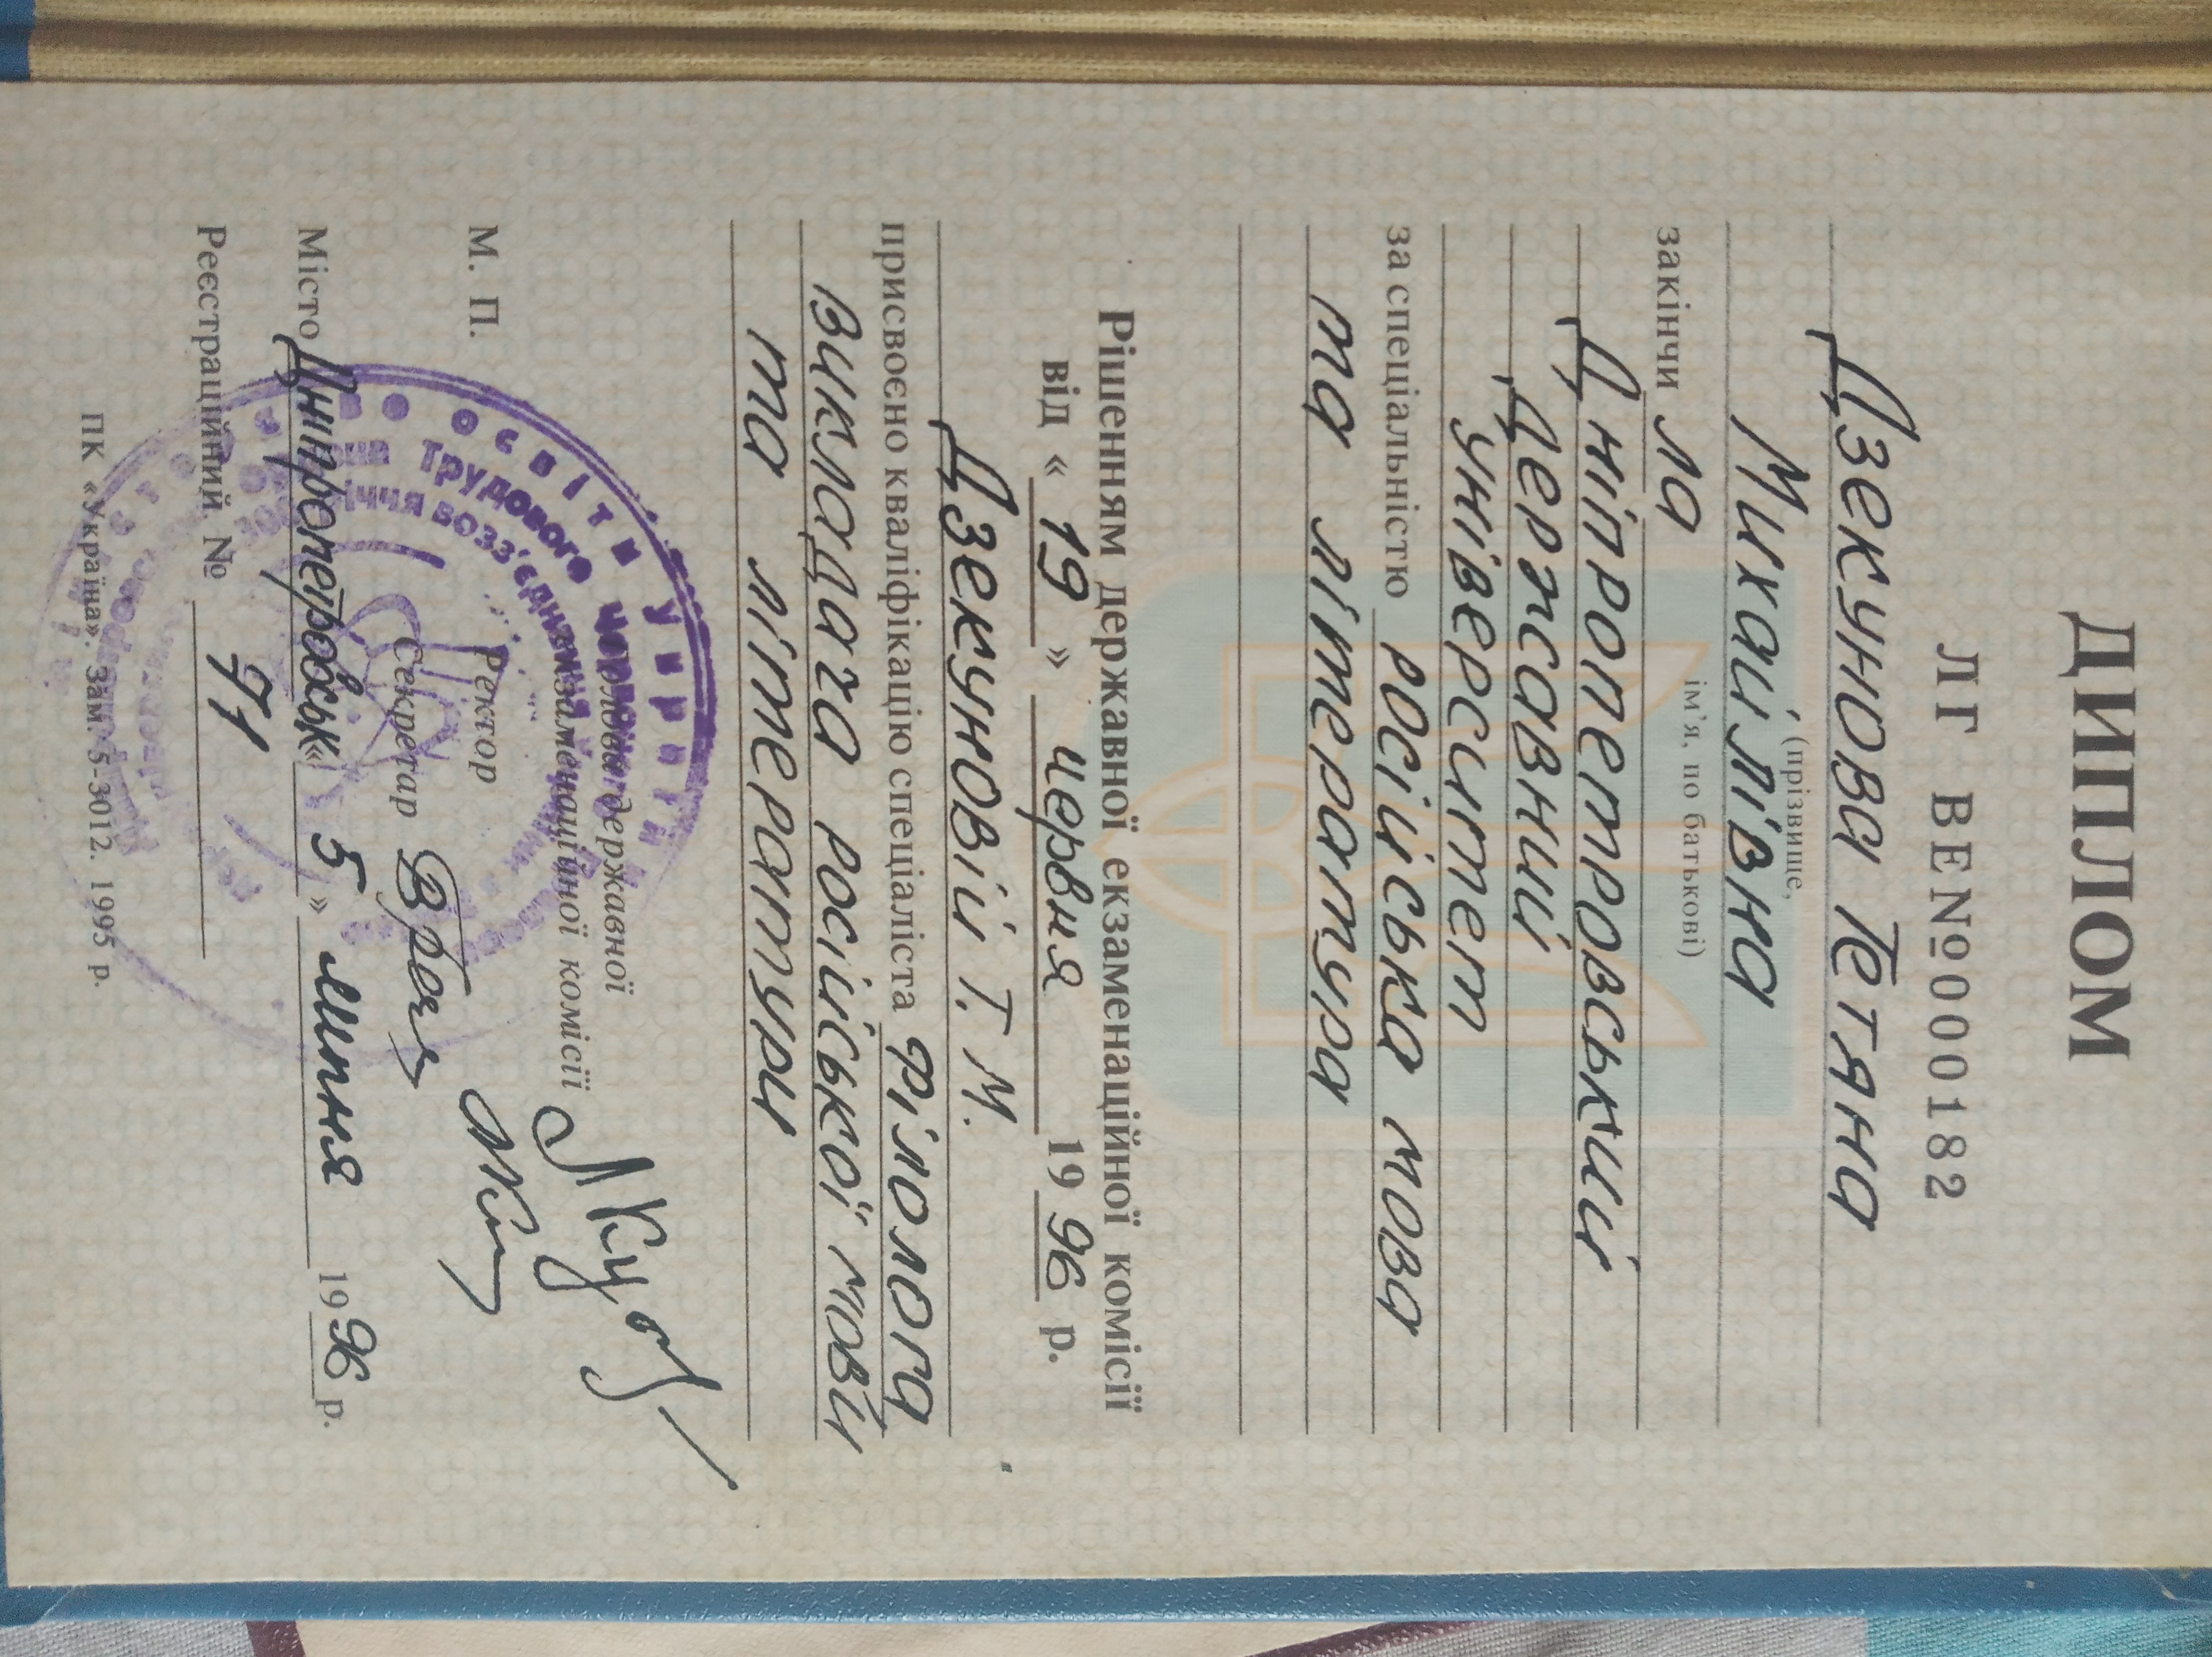 ДИПЛОМ
ЛГ ВЕ№000182
Дзекунова Тетяна
(прізвище,
Михайлівна
ім'я, по батькові)
закінчи ла
Дніпропетровський
Державний
університет
за спеціальністю російська мова
та література
Рішенням державної екзаменаційної комісії
від « 19 » червня 19 96 р.
Дзекуновій Т. М.
присвоєно кваліфікацію спеціаліста Філолога
викладача російської мови
та літератури
Голова державної
екзаменаційної комісії
М. П.
Ректор
Секретар
Місто Дніпропетровськ « 5 » липня 19 96 р.
Реєстраційний № 71
ПК «Україна». Зам. 5-3012. 1995 р.
освіти України
Трудового Червоного